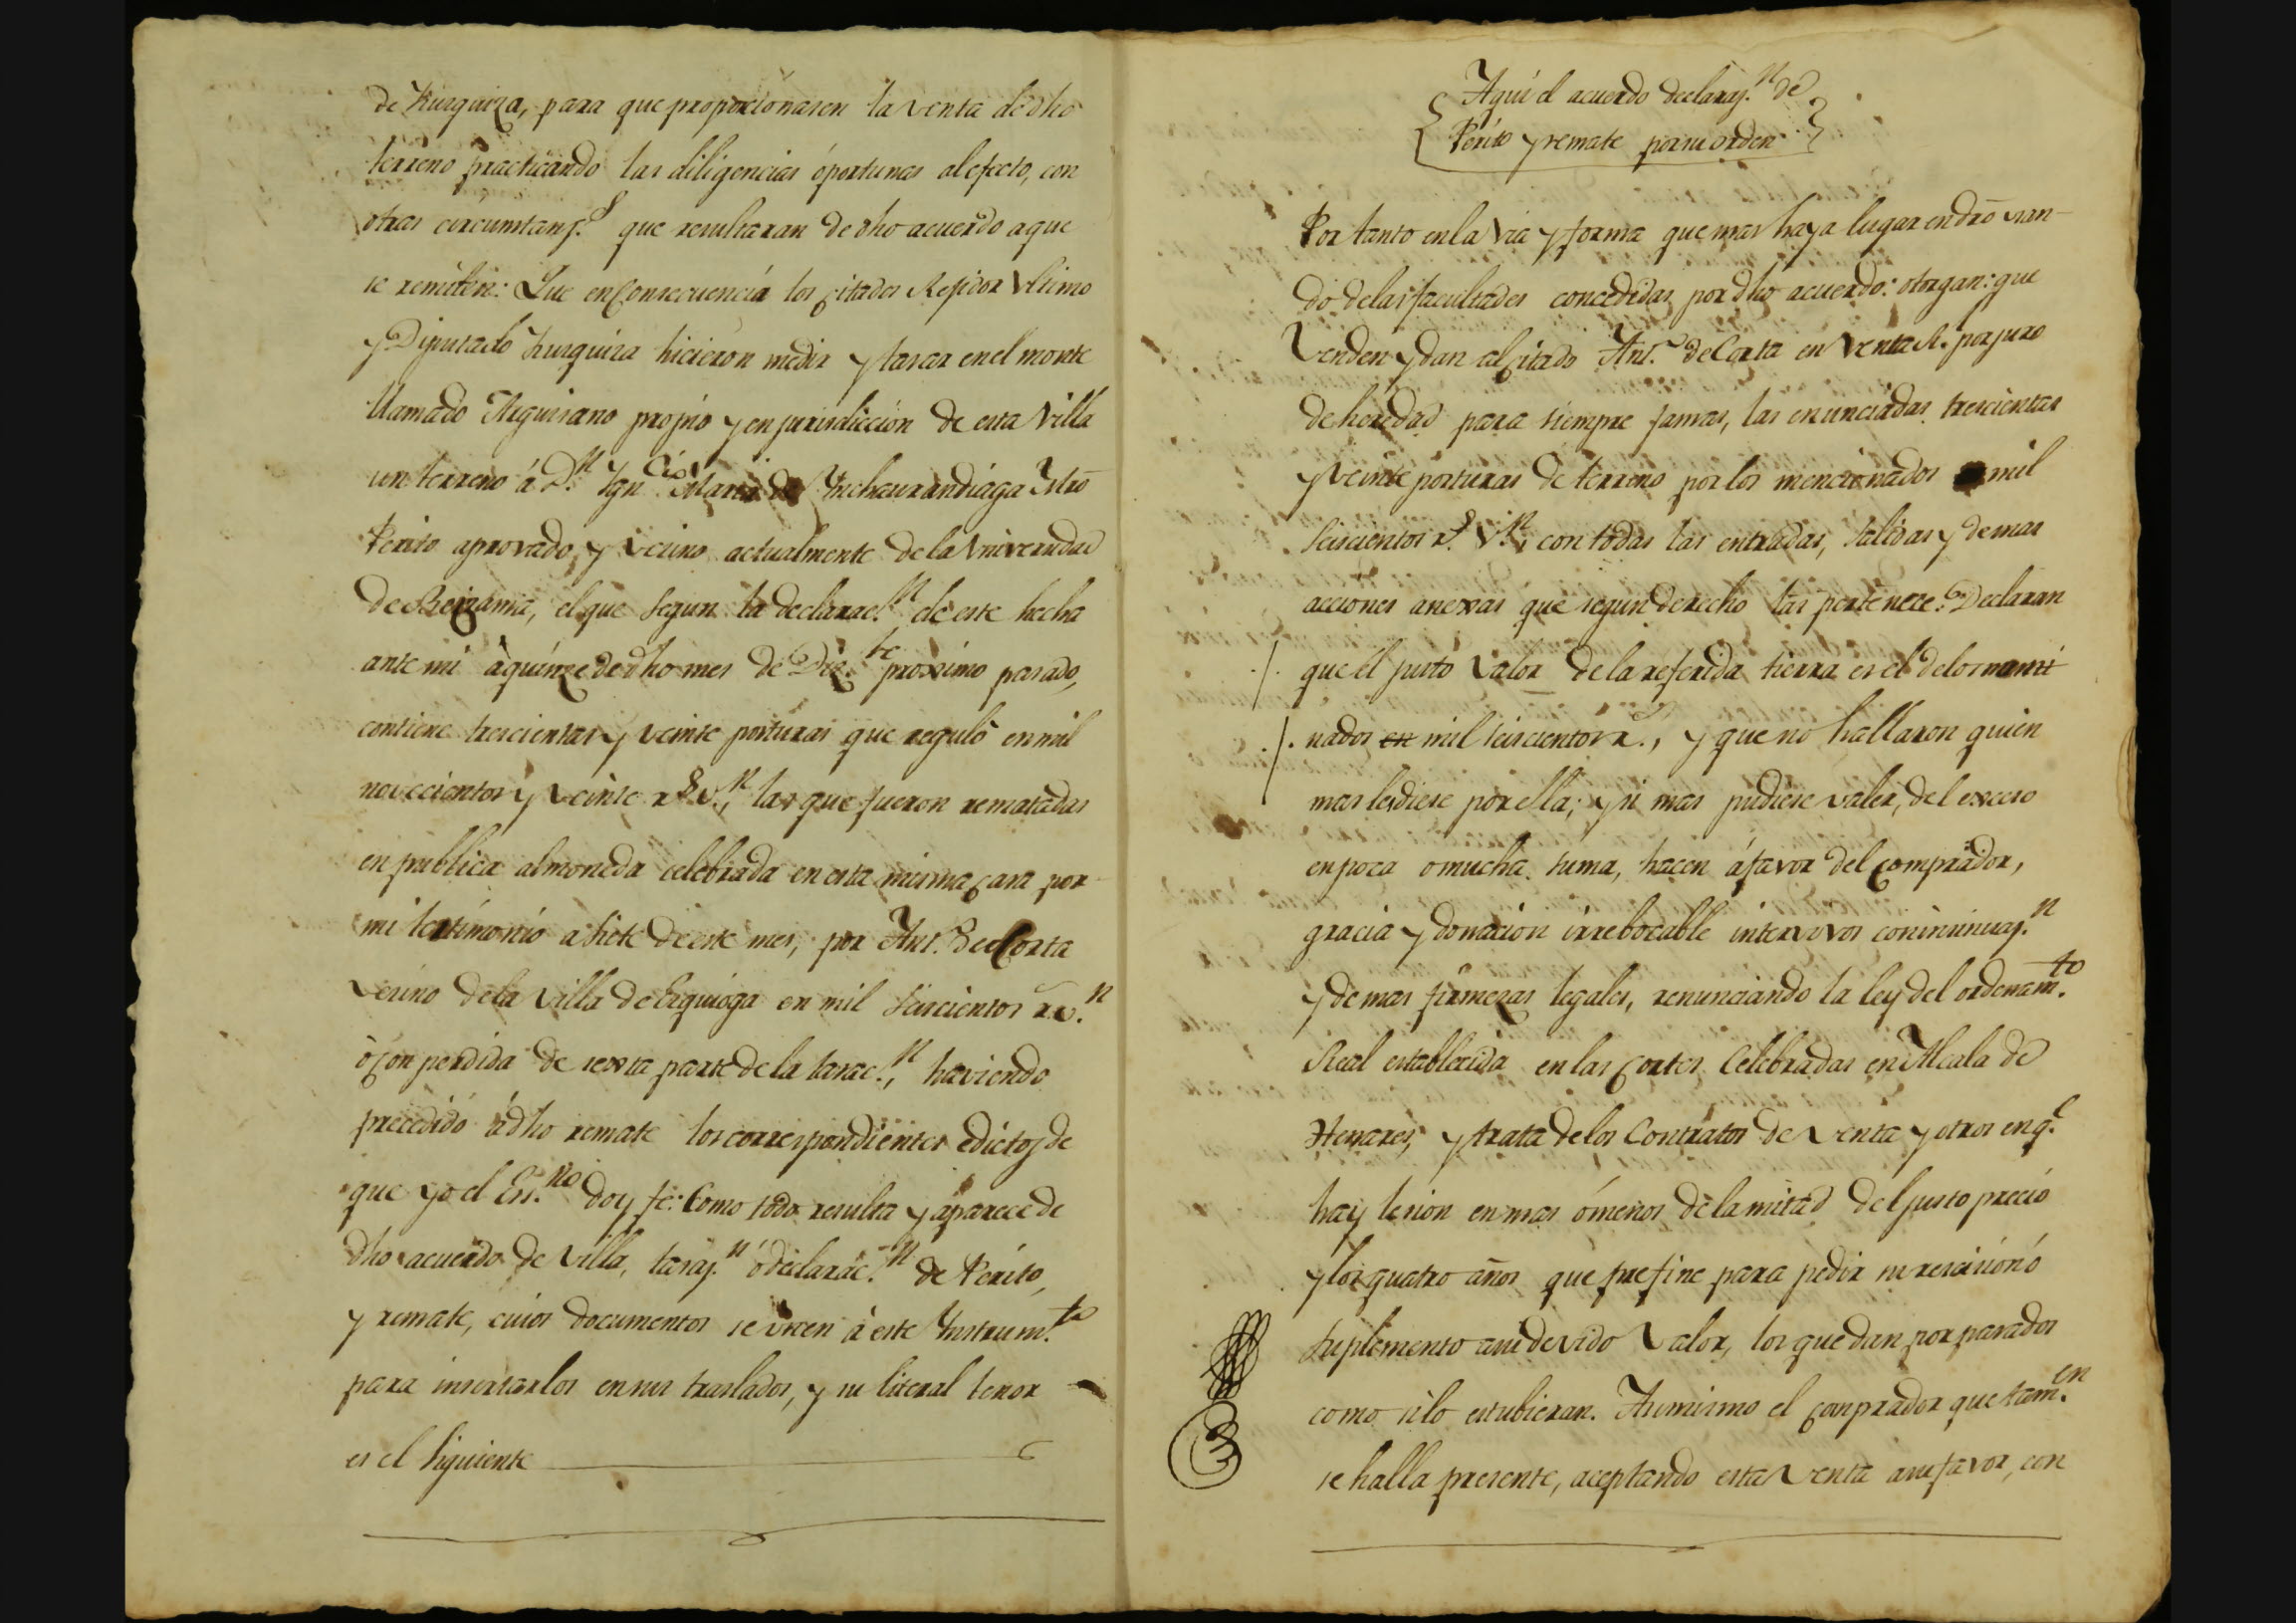 de Kurquiza, para que proporcionasen la venta de dho
terreno practicando las diligencias óportunas al efecto, con
otras circumstanz.s que resultaran de dho acuerdo a que
se remiten: Que en consecuencia los citados Rejidor Vltimo
y Diputado Kurquiza hicieron medir y tasar en el monte
llamado Arguisano propio y en jurisdiccion de esta Villa
un terreno á D.n Ygn.cio Maria de Ynchaurandiaga Mro
Perito aprovado, y vecino actualmente de la Vniversidad
de Beizama, el que segun la declarac.n de este hecha
ante mi à quinze de dho mes de Diz.re proximo pasado,
contiene trescientas y veinte posturas que reguló en mil
novecientos y veinte r.s v.n, las que fueron rematadas
en publica almoneda celebrada en esta misma casa por
mi testimonio a siete de este mes, por Ant.o de Corta
vecino de la villa de Ezquioga en mil seiscientos r.v.n
ò con perdida de sexta parte de la tasac.n, haviendo
precedido à dho remate los correspondientes edictos de
que yo el Ess.no doy fe: Como todo resulta y aparece de
dho acuerdo de Villa, tasaz.n ó declarac.n de Perito,
y remate, cuios documentos se vnen à este Ynstrum.to
para insertarlos en sus traslados, y su literal tenor
es el siguiente
Aqui el acuerdo declaraz.n de
Perito y remate por su orden
Por tanto en la via y forma que mas haya lugar en dro vsan-
do de las facultades concedidas por dho acuerdo: otorgan: que
Venden y dan al citado Ant.o de Corta en Venta R. por juro
de heredad para siempre jamas, las enunciadas trescientas
y veinte posturas de terreno por los mencionados mil
seiscientos r.s v.n, con todas las entradas, salidas y demas
acciones anexas que segun derecho las pertenece: Declaran
que el justo valor de la referida tierra es el de los
nados en mil seiscientos r.s, y que no hallaron quien
mas les diese por ella; y si mas pudiese valer, del exceso
en poca o mucha suma, hacen á favor del comprador,
gracia y donacion irrebocable intervivos con insinuaz.n
y demas firmezas legales, renunciando la ley del ordenam.to
Real establecida en las Cortes Celebradas en Alcala de
Henares, y trata de los Contratos de venta y otros en q.e
hay lesion en mas ó menos de la mitad del justo precio
y los quatro años que prefine para pedir su rescision ó
suplemento a su devido Valor, los que dan por pasados
como si lo estubieran. Asimismo el comprador que tam.en
se halla presente, aceptando esta venta a su favor, con